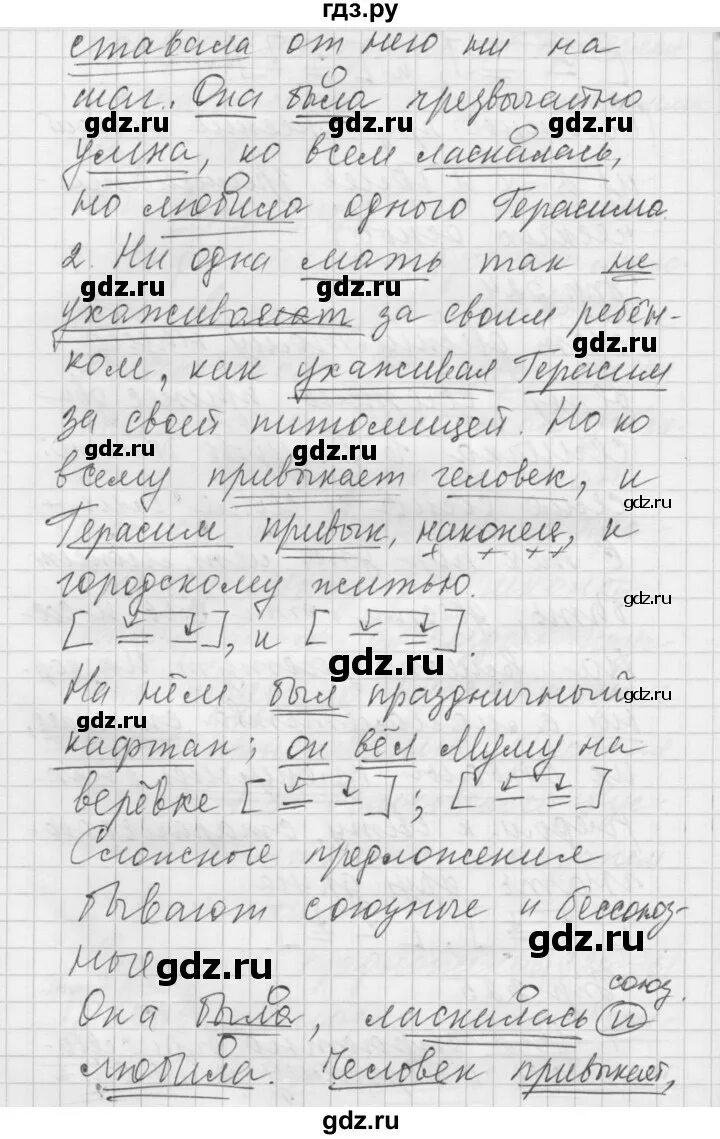 гдз.ру
ставала от него ни на
шаг. Она была чрезвычайно
умна, ко всем ласкалась,
но любила одного Герасима.
2. Ни одна мать так не
ухаживает за своим ребён-
ком, как ухаживал Герасим
за своей питомицей. Но ко
всему привыкает человек, и
Герасим привык, наконец, к
городскому житью.
[ ], и [ ].
На нём был праздничный
кафтан; он вёл Муму на
верёвке [ ]; [ ]
Сложные предложения
бывают союзные и бессоюз-
ные
союз.
Она была, ласкалась и
любила. Человек привыкает,
gdz.ru
gdz.ru
gdz.ru
gdz.ru
gdz.ru
gdz.ru
gdz.ru
gdz.ru
gdz.ru
gdz.ru
gdz.ru
gdz.ru
gdz.ru
gdz.ru
gdz.ru
gdz.ru
gdz.ru
gdz.ru
gdz.ru
gdz.ru
gdz.ru
gdz.ru
gdz.ru